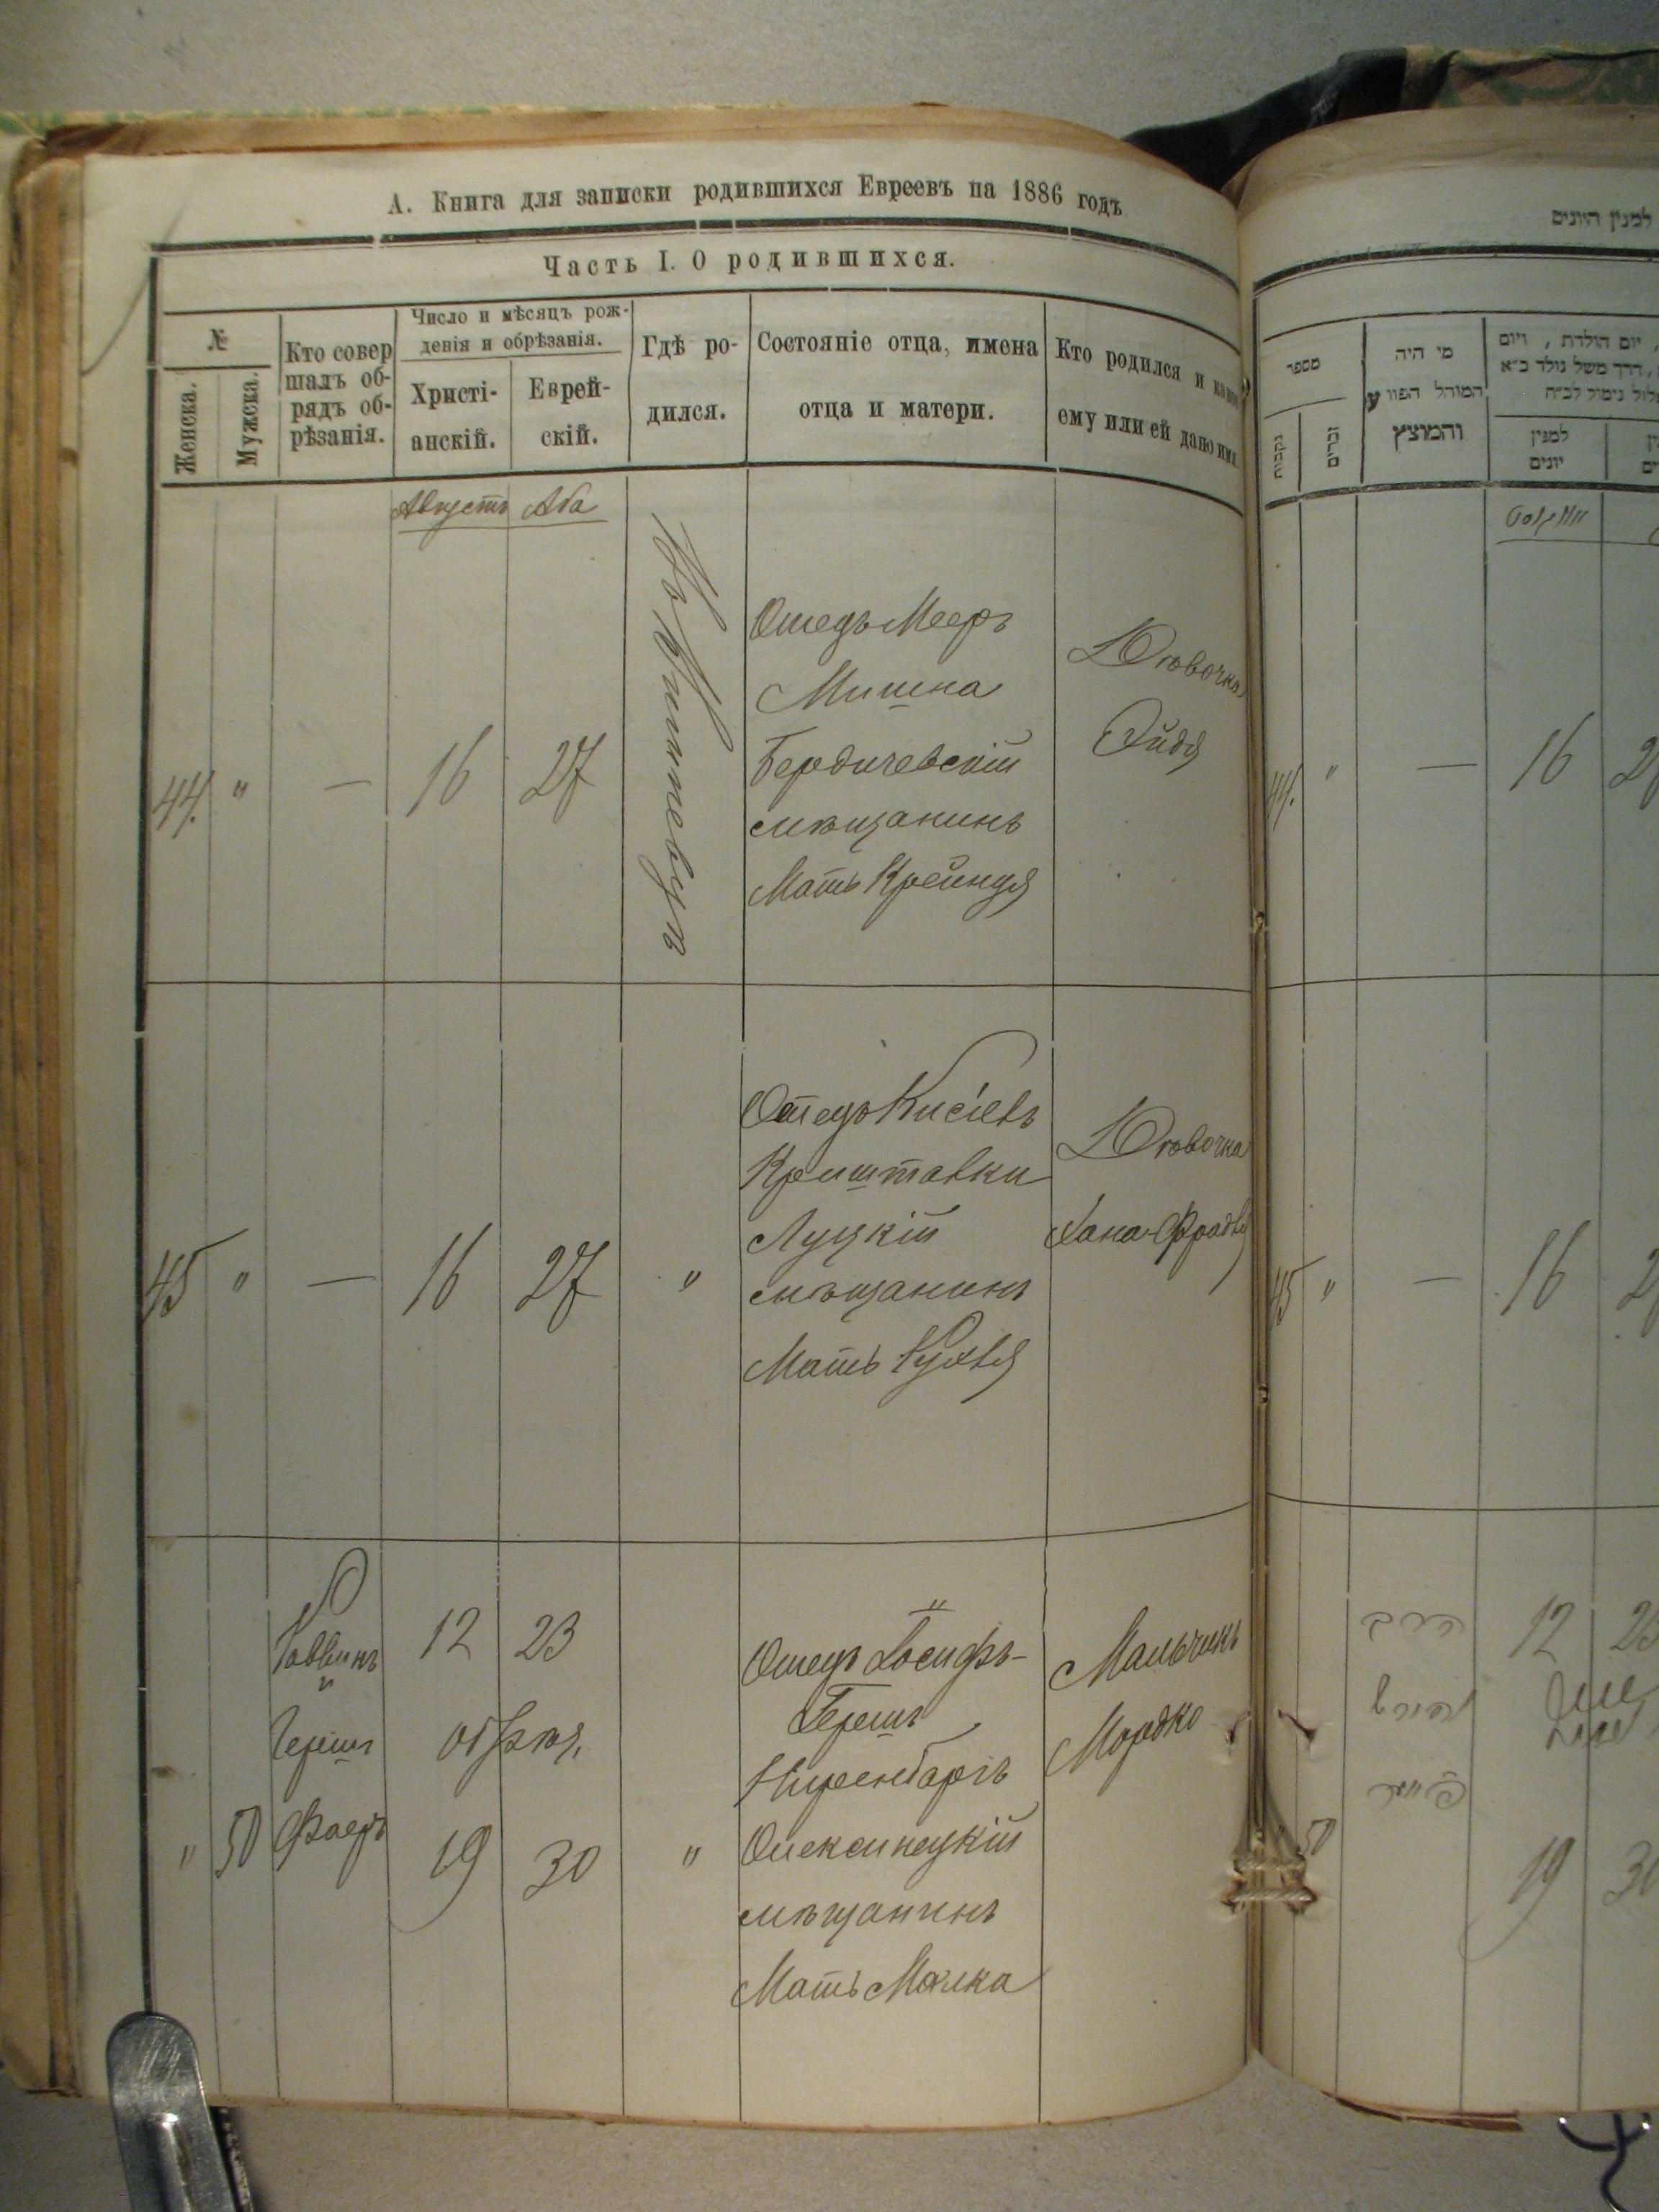 А. Книга для записки родившихся Евреевъ на 1886 годъ
Часть I. О родившихся.
№
Женска.
Мужска.
Кто совер
шалъ об-
рядъ об-
рѣзанія.
Число и мѣсяцъ рож-
денія и обрѣзанія.
Христі-
анскій.
Еврей-
скій.
Гдѣ ро-
дился.
Состояніе отца, имена
отца и матери.
Кто родился и какое
ему или ей дано имя.
Августъ Аба
44. " — 16 27
Отецъ Мееръ
Мишна
Бердичевскій
мѣщанинъ
Мать Крейндя
Дѣвочка
Эйдя
45 " — 16 27 "
Отецъ Кисіевъ
Крештавки
Луцкій
мѣщанинъ
Мать Рухля
Дѣвочка
Хана-Фрадя
" 50
Раввинъ
и
Гершъ
Фаеръ
12 23
обрѣз.
19 30
"
Отецъ Іосифъ-
Гершъ
Ниренбаргъ
Олексинецкій
мѣщанинъ
Мать Малка
Мальчикъ
Мордко
למנין היונים
מספר
נקבות
זכרים
מי היה
המוהל הפורע
והמוצץ
יום הולדת , ויום
למנין
יונים
אויגוסט
44. " — 16
45 " — 16
50
הרב
הירש
פייער
12
19